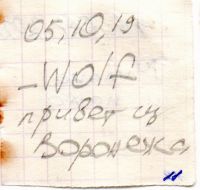 05,10,19
-Wolf
привет из
Воронежа